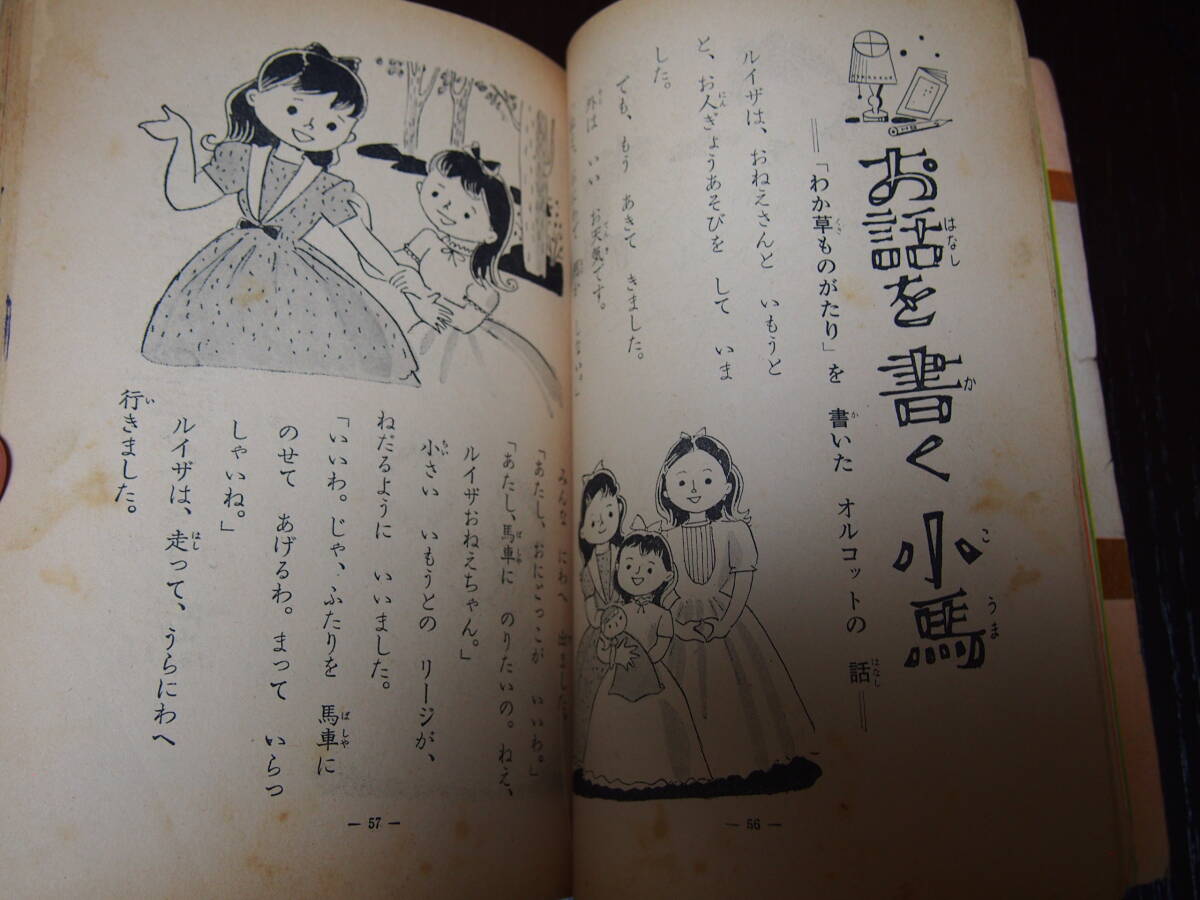 お話を書く小馬
はなし
か
こうま
══「わか草ものがたり」を 書いた オルコットの 話══
くさ
か
はなし
ルイザは、おねえさんと いもうと
と、お人ぎょうあそびを して いま
にん
した。
でも、もう あきて きました。
外は いい お天気です。
しない。」
— 56 —
みんな にわへ 出ました。
「あたし、おにごっこが いいわ。」
「あたし、馬車に のりたいの。ねえ、
ばしゃ
ルイザおねえちゃん。」
小さい いもうとの リージが、
ちい
ねだるように いいました。
「いいわ。じゃ、ふたりを 馬車に
ばしゃ
のせて あげるわ。まって いらっ
しゃいね。」
ルイザは、走って、うらにわへ
はし
行きました。
い
— 57 —